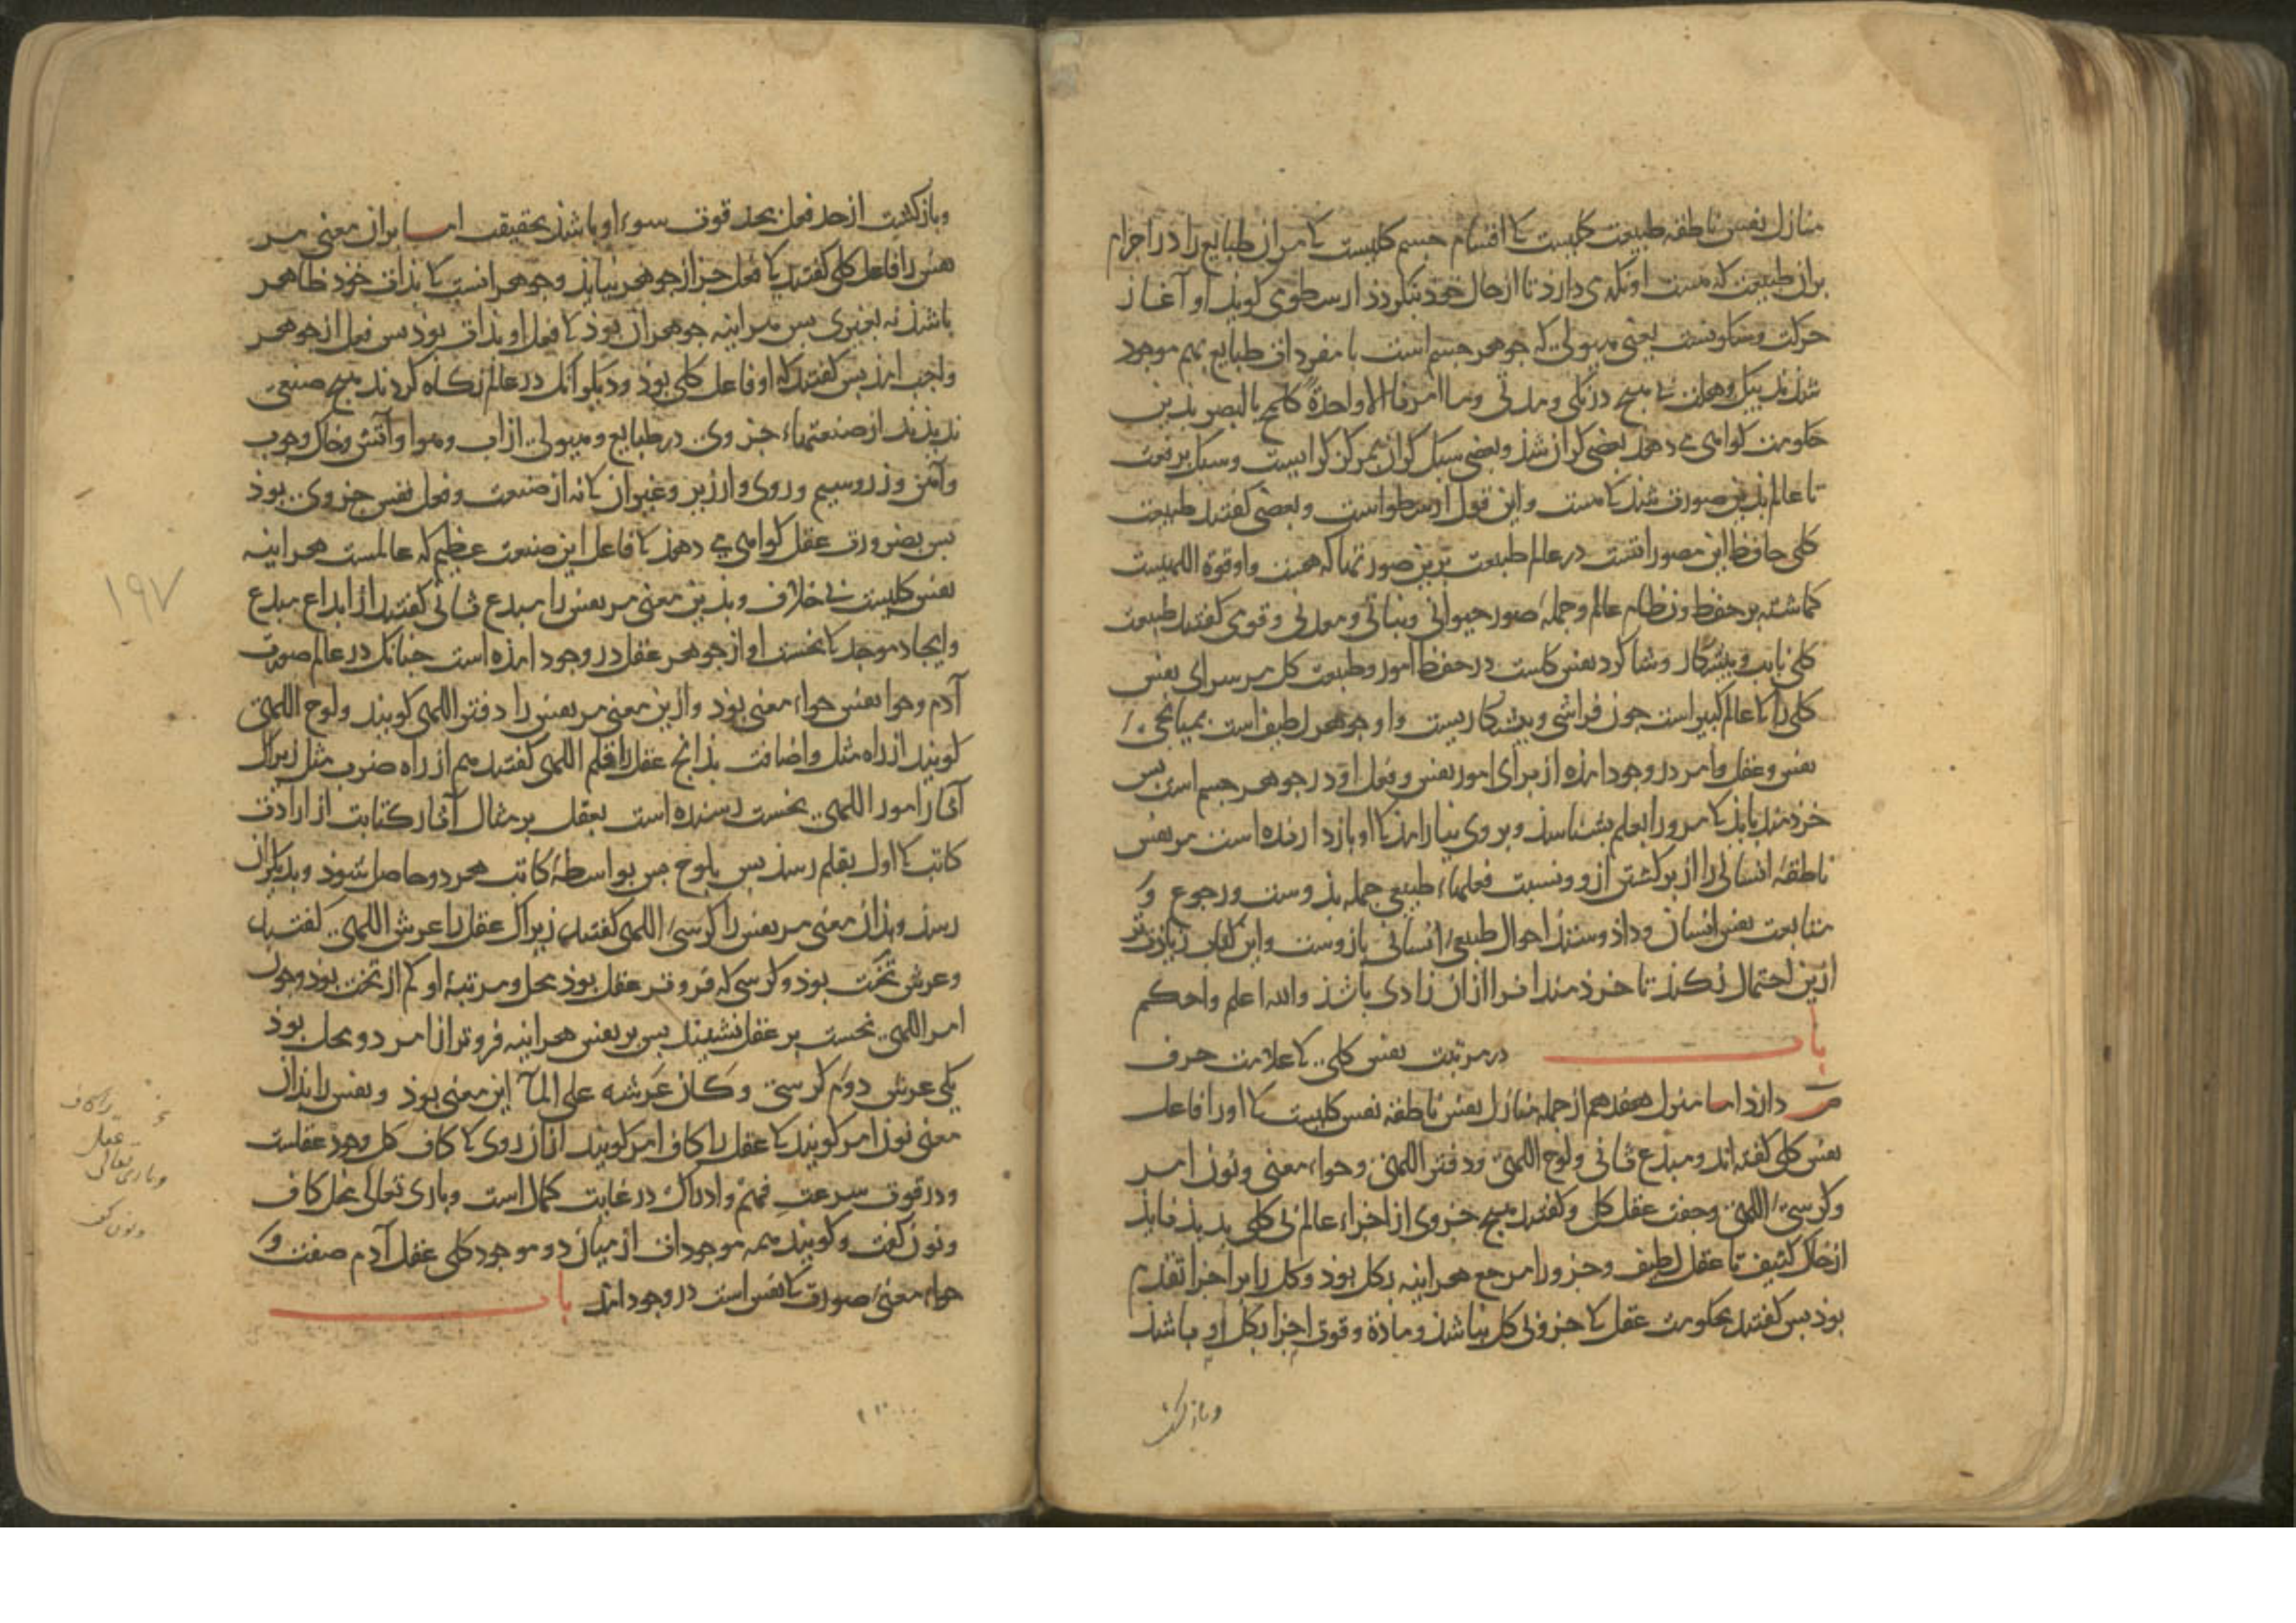 منازل نفس ناطقه طبیعت کلیست کا اقسام جسم کلیست کا مران طبایع را در اجرام
بران طبیعت که هست او نکه می دارد تا از حال خود بنکردد ارسطوی کوید او آغاز
حرکت وسکونست یعنی هیولی که جوهر جسم است با مفردات طبایع بهم موجود
شدند بیک وهلت بی هیچ درنکی ومدتی وما امرنا الا واحدة کلمح بالبصر بدین
حکومت کواهی می دهد بعضی کران شد وبعضی سبک کران بمرکز کرایست وسبک برفت
تا عالم بدین صورت شد کا هست واین قول ارسطوست وبعضی کفتند طبیعت
کلی حافظ این مصوراتست در عالم طبیعت برین صورتها که هست واو قوة اللهیست
کماشته بر حفظ ونظام عالم وجمله صور حیوانی ونباتی ومعدنی وقومی کفتند طبیعت
کلی نایب وپیشکار وشاکرد نفس کلست در حفظ امور وطبیعت کل مر سرای نفس
کلی را کا عالم کبیر است چون فراشی وپیشکاریست واو جوهر لطیف است بمیانجی
نفس وعقل وامر در وجود امذه از برای امور نفس وفعل او در جوهر جسم است بس
خردمند باید کا مرورا بعلم بشناسد وبر وی نیارامد کا او بازدارنده است مر نفس
ناطقهٔ انسانی را از برکشتن ازو ونسبت فعلهاء طبیعی جمله بدوست ورجوع و
متابعت نفس انسان وداد وستد احوال طبیعی انسانی بازوست واین کتاب زیادت
ازین احتمال نکند تا خردمند را فرا ازان زادی باشد والله اعلم واحکم
باب در مرتبت نفس کلی کا علامت حرف
دارد اما منزل هفدهم از جمله منازل نفس ناطقه نفس کلیست کا اورا فاعل
نفس کلی کفته اند ومبدع ثانی ولوح اللهی ودفتر اللهی وحواء معنی ونون امر
وکرسی اللهی وجفت عقل کل وکفتند هیچ جزوی از اجزاء عالم بی کلی پدید نیاید
از خاک کثیف تا عقل لطیف وجزورا مرجع هراینه بکل بود وکل را بر اجزا تقدم
بود بس کفتند بحکومت عقل کا جزو بی کل نباشد ومادة وقوت اجزا بکل او باشد
وبازکشت
وبازکشت از حد فعل بحد قوت سوء او باشد بحقیقت اما بران معنی مر
نفس را فاعل کلی کفتند کا فعل جز از جوهر نیاید وجوهر انست کا بذات خود ظاهر
باشد نه بغیری بس هراینه جوهر ان بود کا فعل او بذات بود بس فعل از جوهر
واجب امد بس کفتند که او فاعل کلی بود ودیکر آنک در عالم نکاه کردند هیچ صنعی
ندیدند از صنعتهاء جزوی در طبایع وهیولی از اب وهوا وآتش وخاک وچوب
وآهن وزر وسیم وروی وارزیز وغیر ان کا نه از صنعت وفعل نفس جزوی بود
بس بضرورت عقل کواهی می دهد کا فاعل این صنعت عظیم که عالمست هراینه
نفس کلیست بی خلاف وبدین معنی مر نفس را مبدع ثانی کفتند از ابداع مبدع
وایجاد موجد کا نخست او از جوهر عقل در وجود امذه است چنانک در عالم صورت
آدم وحوا نفس حواء معنی بود وازین معنی مر نفس را دفتر اللهی کویند ولوح اللهی
کویند از راه مثل واضافت بدانچ عقل را قلم اللهی کفتند هم از راه ضرب مثل زیراک
آثار امور اللهی نخست رسنده است بعقل بر مثال آثار کتابت از ارادت
کاتب کا اول بقلم رسد بس بلوح بس بواسطهٔ کاتب هر دو حاصل شود وبدیکران
رسد وبدان معنی مر نفس را کرسی اللهی کفتند زیراک عقل را عرش اللهی کفتند
وعرش تخت بود وکرسی که فروتر عقل بود بمحل ومرتبهٔ او کم از تخت بود وچون
امر اللهی نخست بر عقل نشیند بس بر نفس هراینه فروتر از امر دو محل بود
یکی عرش دوم کرسی وکان عرشه علی المآء این معنی بود ونفس را بدان
معنی نون امر کویند کا عقل را کاف امر کویند از آن روی کا کاف کل وجود عقلست
ودر قوت سرعت فهم وادراک در غایت کمال است وباری تعالی بمحل کاف
ونون کفت وکویند همه موجودات از میان دو موجود کلی عقل آدم صفت و
حواء معنی صورت کا نفس است در وجود امد باب
۱۹۷
وباری تعالی